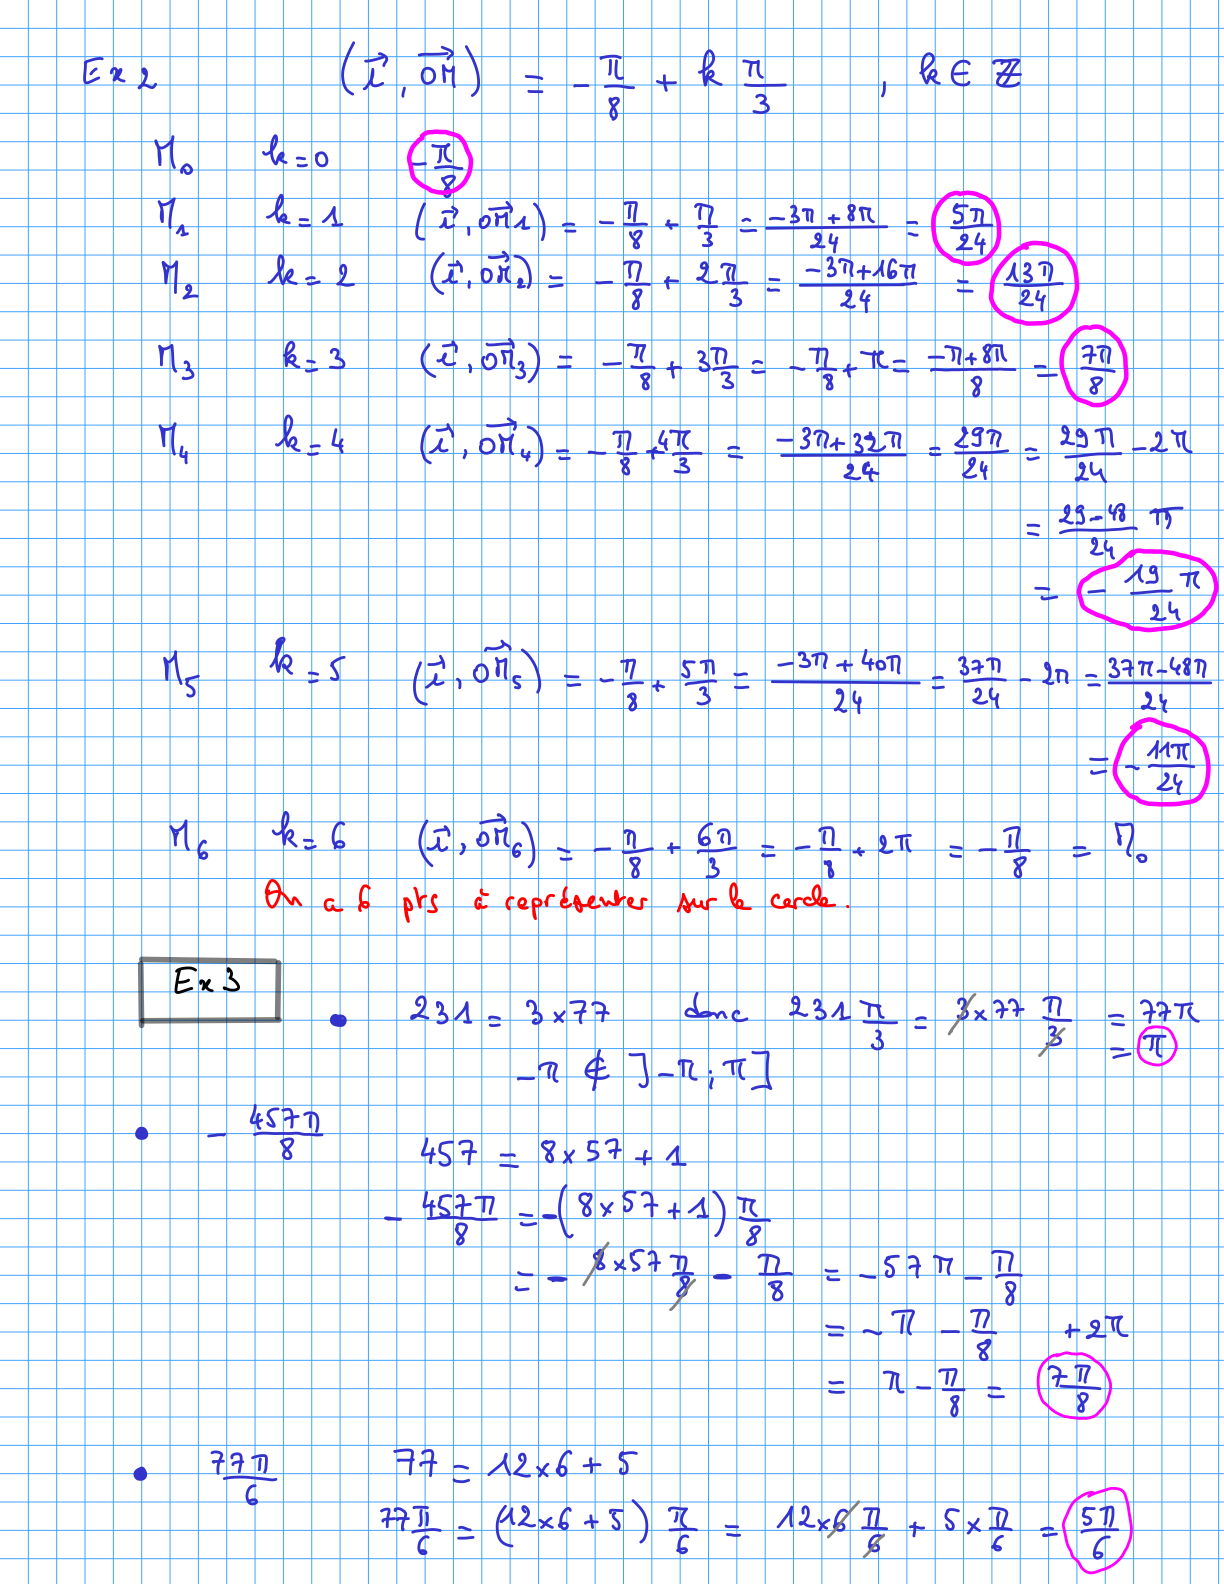 Ex 2 (i⃗, OM⃗) = -π/8 + k π/3 , k ∈ ℤ
M₀ k=0 -π/8
M₁ k=1 (i⃗, OM⃗1) = -π/8 + π/3 = (-3π+8π)/24 = 5π/24
M₂ k=2 (i⃗, OM⃗₂) = -π/8 + 2π/3 = (-3π+16π)/24 = 13π/24
M₃ k=3 (i⃗, OM⃗₃) = -π/8 + 3π/3 = -π/8 + π = (-π+8π)/8 = 7π/8
M₄ k=4 (i⃗, OM⃗₄) = -π/8 + 4π/3 = (-3π+32π)/24 = 29π/24 = 29π/24 - 2π
= (29-48)/24 π
= -19/24 π
M₅ k=5 (i⃗, OM⃗₅) = -π/8 + 5π/3 = (-3π+40π)/24 = 37π/24 - 2π = (37π-48π)/24
= -11π/24
M₆ k=6 (i⃗, OM⃗₆) = -π/8 + 6π/3 = -π/8 + 2π = -π/8 = M₀
On a 6 pts à représenter sur le cercle.
Ex 3
• 231 = 3×77 donc 231 π/3 = 3×77 π/3 = 77π
= π
-π ∉ ]-π ; π]
• -457π/8
457 = 8×57 + 1
-457π/8 = -(8×57+1) π/8
= -8×57 π/8 - π/8 = -57π - π/8
= -π - π/8 +2π
= π - π/8 = 7π/8
• 77π/6 77 = 12×6 + 5
77π/6 = (12×6+5) π/6 = 12×6 π/6 + 5×π/6 = 5π/6